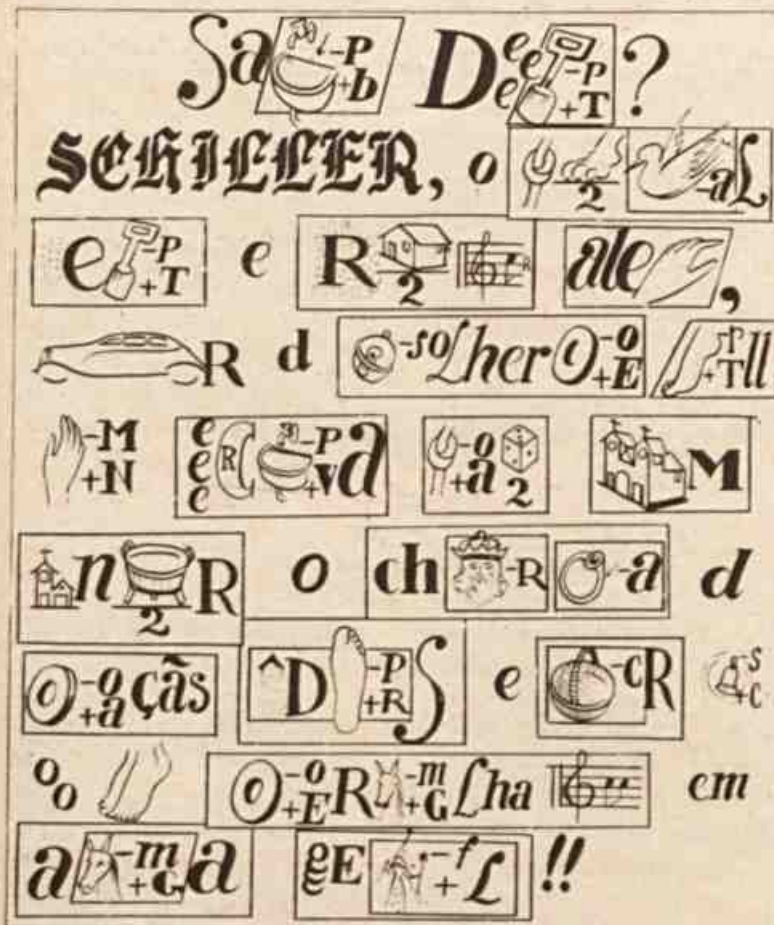 Sa -P +b De e e -P +T ?
SCHILLER, o 2 -aL
e -P +T e R 2 ale ,
R d -soLher O -o +E -P +T ll
-M +N e e e R -P +v a -o +a 2 M
n 2 R o ch -R -a d
O -o +a çãs ^D -P +R S e -cR -S +C
o o O -o +E R -m +G Lha em
a -m +G a e e E -f + L !!